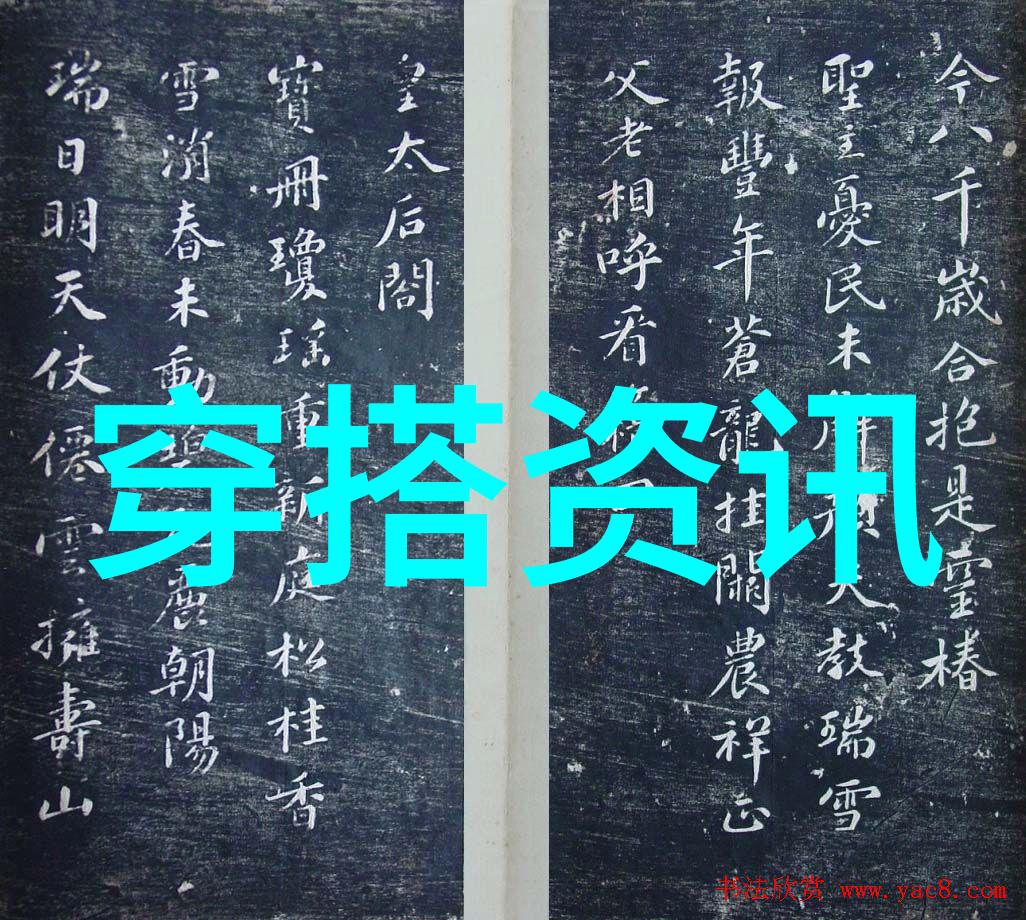 今八千歲合抱是靈椿
聖主憂民未解天教瑞雪
報豐年蒼龍挂闕農祥正
父老相呼看
皇太后閣
寶冊瓊瑤重新庭松桂香
雪消春未動麗朝陽
瑞日明天仗僊雲擁壽山
穿搭资讯
书法欣赏 www.yac8.com